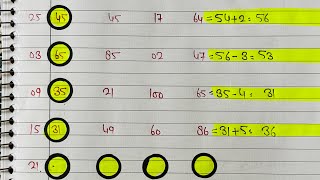 25 45 45 17 64 = 54+2 = 56
03 65 85 02 47 = 56-3 = 53
09 35 21 100 65 = 35-4 = 31
15 31 49 60 86 = 31+5 = 36
21